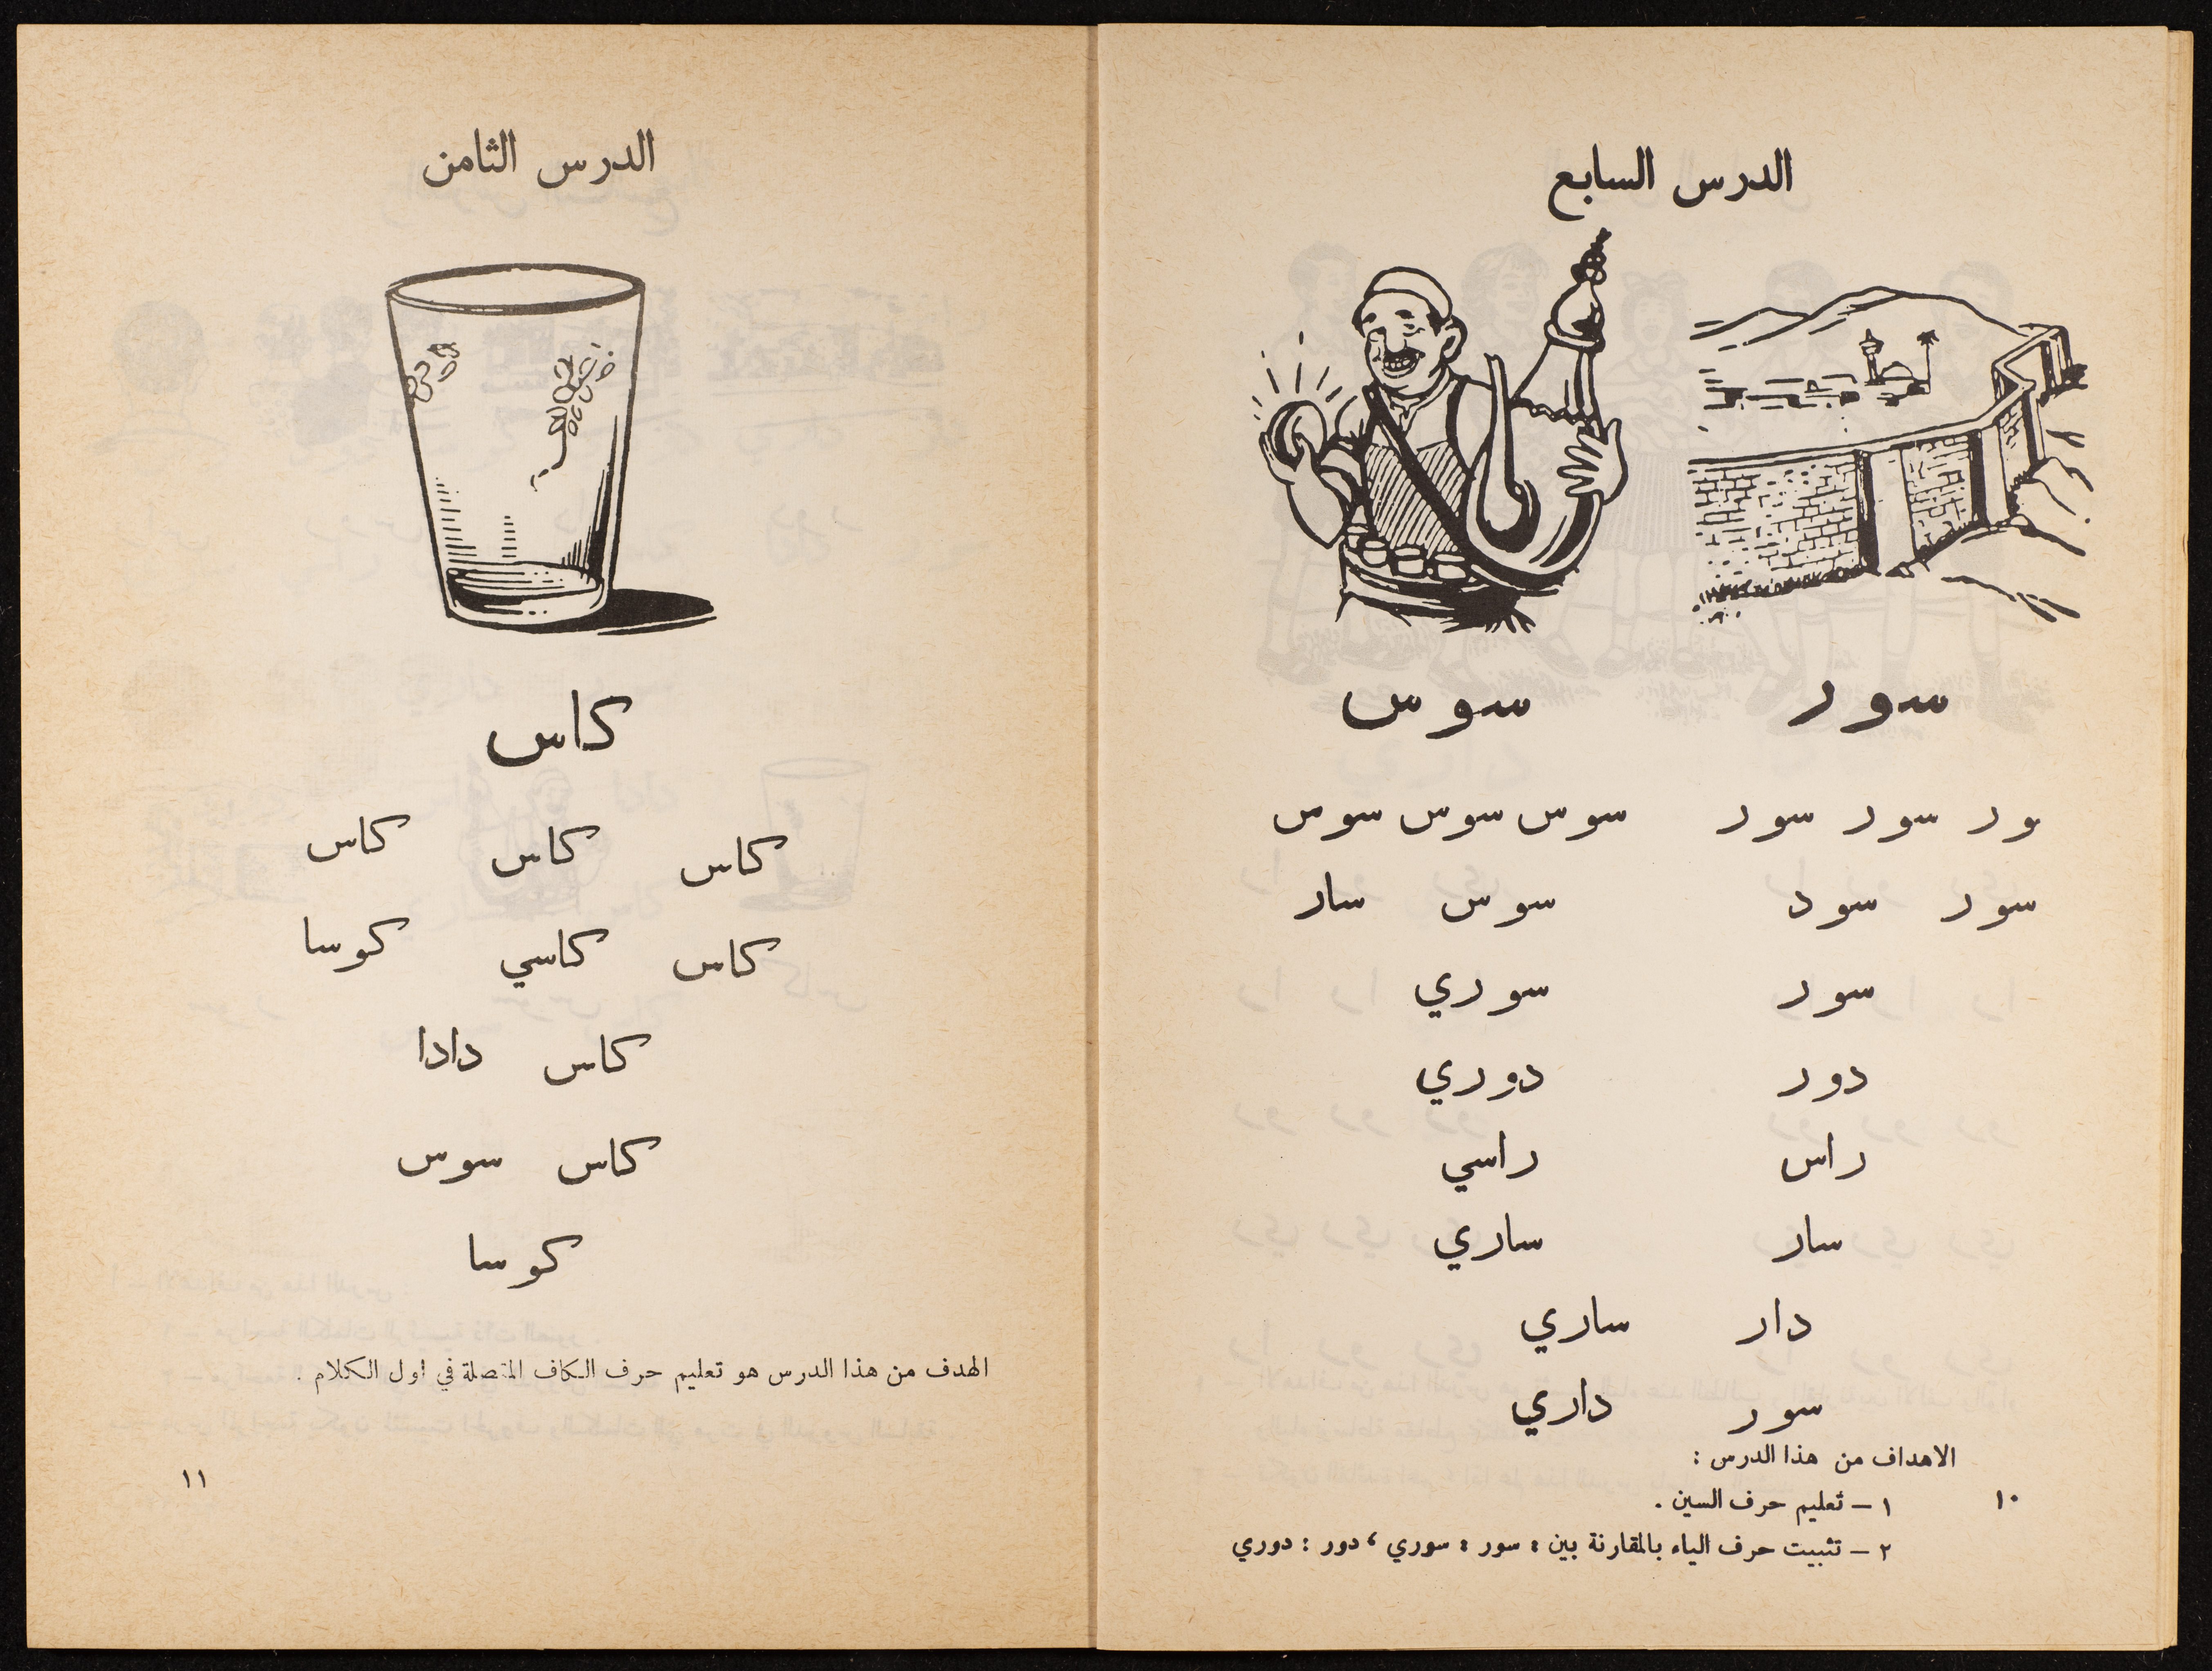 الدرس السابع
سور سوس
ور سور سور سوس سوس سوس
سور سود سوس سار
سور سوري
دور دوري
راس راسي
سار ساري
دار ساري
سور داري
الاهداف من هذا الدرس :
١ – تعليم حرف السين .
٢ – تثبيت حرف الياء بالمقارنة بين : سور : سوري ، دور : دوري
١٠
الدرس الثامن
كاس
كاس كاس كاس
كاس كاسي كوسا
كاس دادا
كاس سوس
كوسا
الهدف من هذا الدرس هو تعليم حرف الكاف المتصلة في اول الكلام .
١١